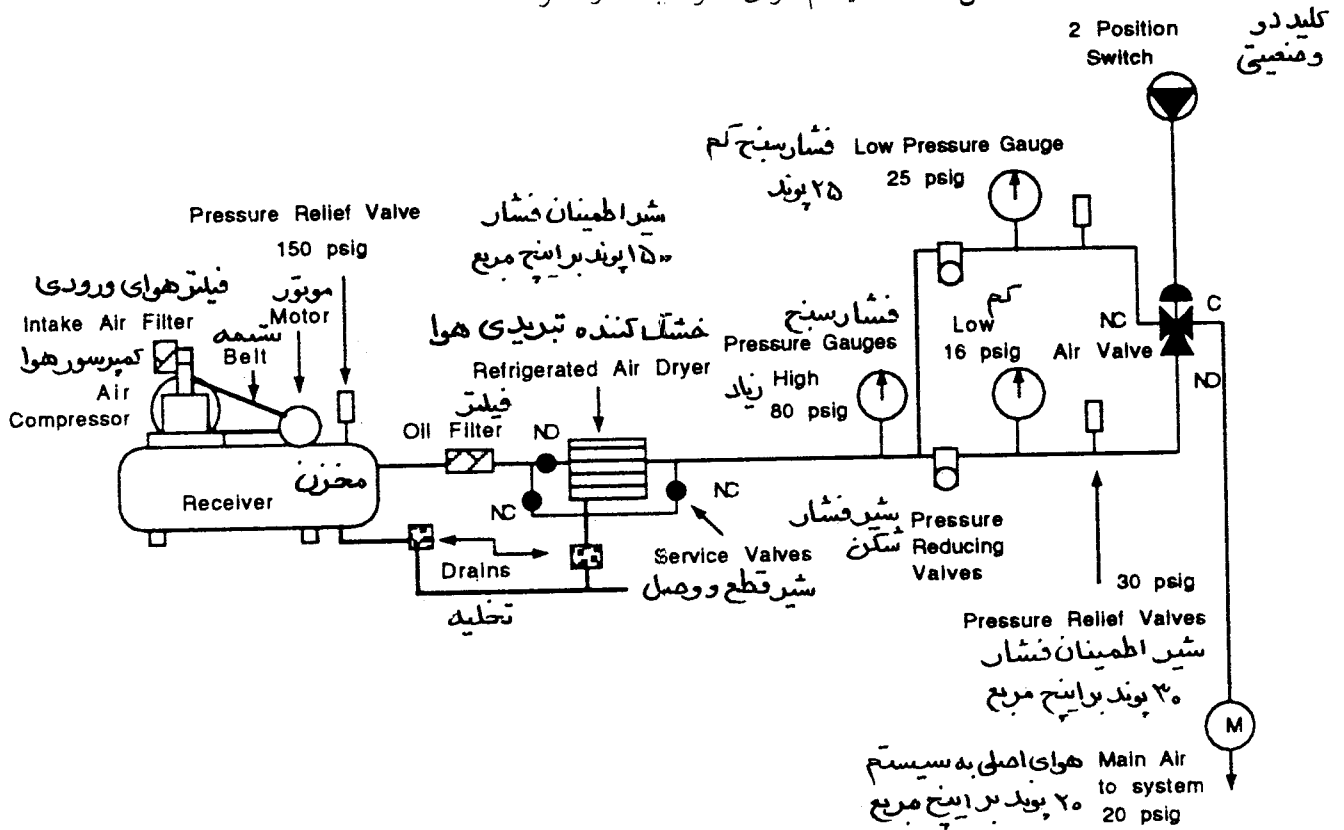 کلید دو
وضعیتی
2 Position
Switch
فشارسنج کم
۲۵ پوند
Low Pressure Gauge
25 psig
Pressure Relief Valve
150 psig
شیر اطمینان فشار
۱۵۰ پوند بر اینچ مربع
فیلتر هوای ورودی
Intake Air Filter
موتور
Motor
تسمه
Belt
کمپرسور هوا
Air
Compressor
خشک کننده تبریدی هوا
Refrigerated Air Dryer
فیلتر
Oil Filter
NO
NC
NC
فشارسنج
Pressure Gauges
زیاد
High
80 psig
کم
Low
16 psig
Air Valve
NC
C
NO
Receiver
مخزن
Drains
تخلیه
Service Valves
شیر قطع و وصل
شیر فشار
شکن
Pressure
Reducing
Valves
30 psig
Pressure Relief Valves
شیر اطمینان فشار
۳۰ پوند بر اینچ مربع
M
هوای اصلی به سیستم
۲۰ پوند بر اینچ مربع
Main Air
to system
20 psig